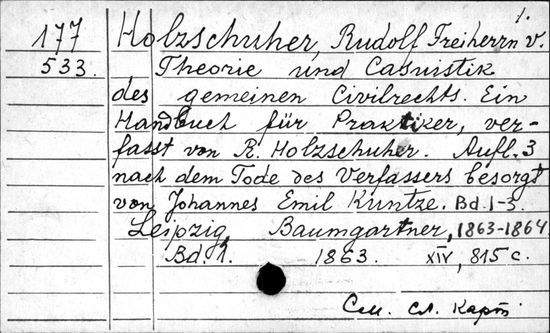 1.
177 Holzschuher, Rudolf Freiherrn v.
533. Theorie und Casuistik
des gemeinen Civilrechts. Ein
Handbuch für Praktiker, ver-
fasst von R. Holzschuher. Aufl. 3
nach dem Tode des Verfassers besorgt
von Johannes Emil Kuntze. Bd. 1-3.
Leipzig, Baumgartner, 1863-1864.
Bd. 1. 1863. XIV, 815 c.
См. сл. карт.